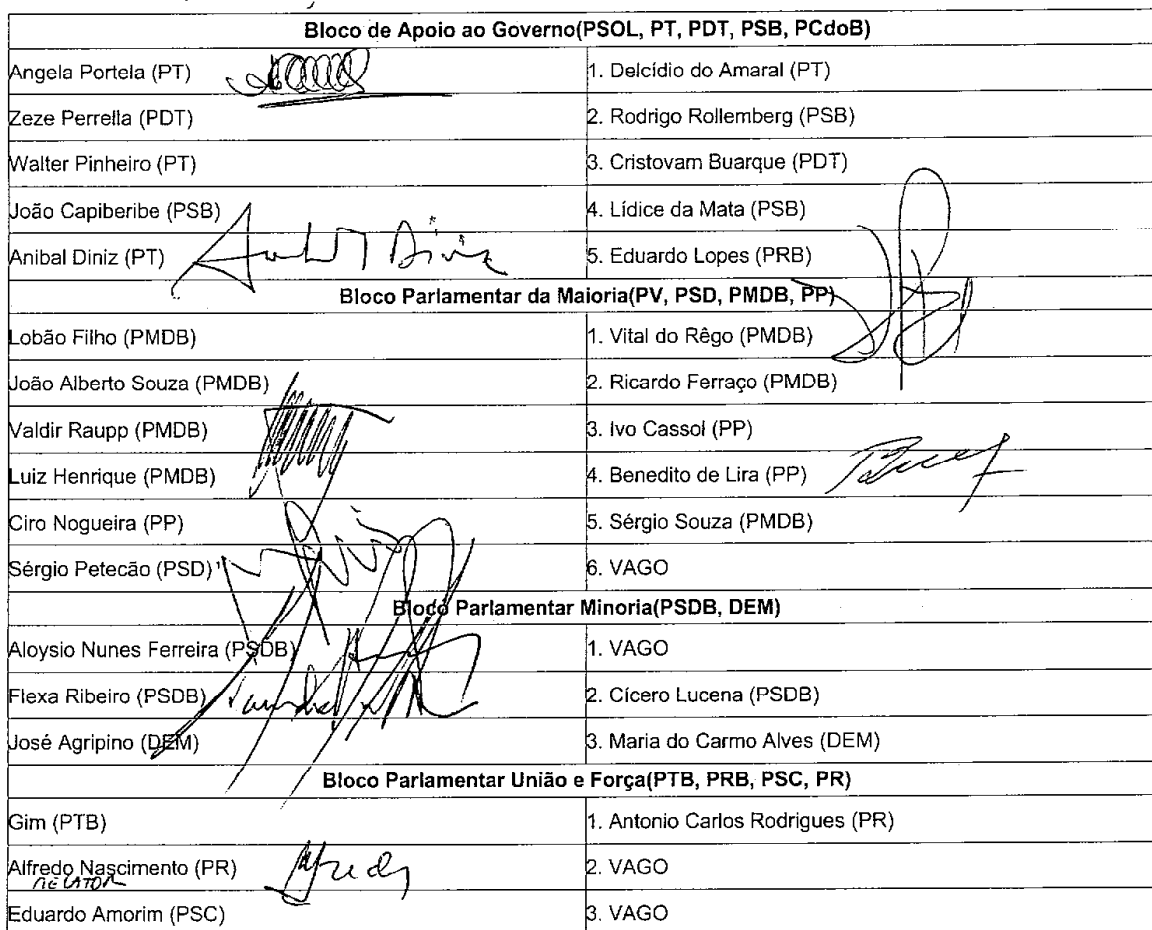 Bloco de Apoio ao Governo(PSOL, PT, PDT, PSB, PCdoB)
Angela Portela (PT) 1. Delcídio do Amaral (PT)
Zeze Perrella (PDT) 2. Rodrigo Rollemberg (PSB)
Walter Pinheiro (PT) 3. Cristovam Buarque (PDT)
João Capiberibe (PSB) 4. Lídice da Mata (PSB)
Anibal Diniz (PT) Anibal Diniz 5. Eduardo Lopes (PRB)
Bloco Parlamentar da Maioria(PV, PSD, PMDB, PP)
Lobão Filho (PMDB) 1. Vital do Rêgo (PMDB)
João Alberto Souza (PMDB) 2. Ricardo Ferraço (PMDB)
Valdir Raupp (PMDB) 3. Ivo Cassol (PP)
Luiz Henrique (PMDB) 4. Benedito de Lira (PP)
Ciro Nogueira (PP) 5. Sérgio Souza (PMDB)
Sérgio Petecão (PSD) 6. VAGO
Bloco Parlamentar Minoria(PSDB, DEM)
Aloysio Nunes Ferreira (PSDB) 1. VAGO
Flexa Ribeiro (PSDB) 2. Cícero Lucena (PSDB)
José Agripino (DEM) 3. Maria do Carmo Alves (DEM)
Bloco Parlamentar União e Força(PTB, PRB, PSC, PR)
Gim (PTB) 1. Antonio Carlos Rodrigues (PR)
Alfredo Nascimento (PR) Alfredo 2. VAGO
RELATOR
Eduardo Amorim (PSC) 3. VAGO